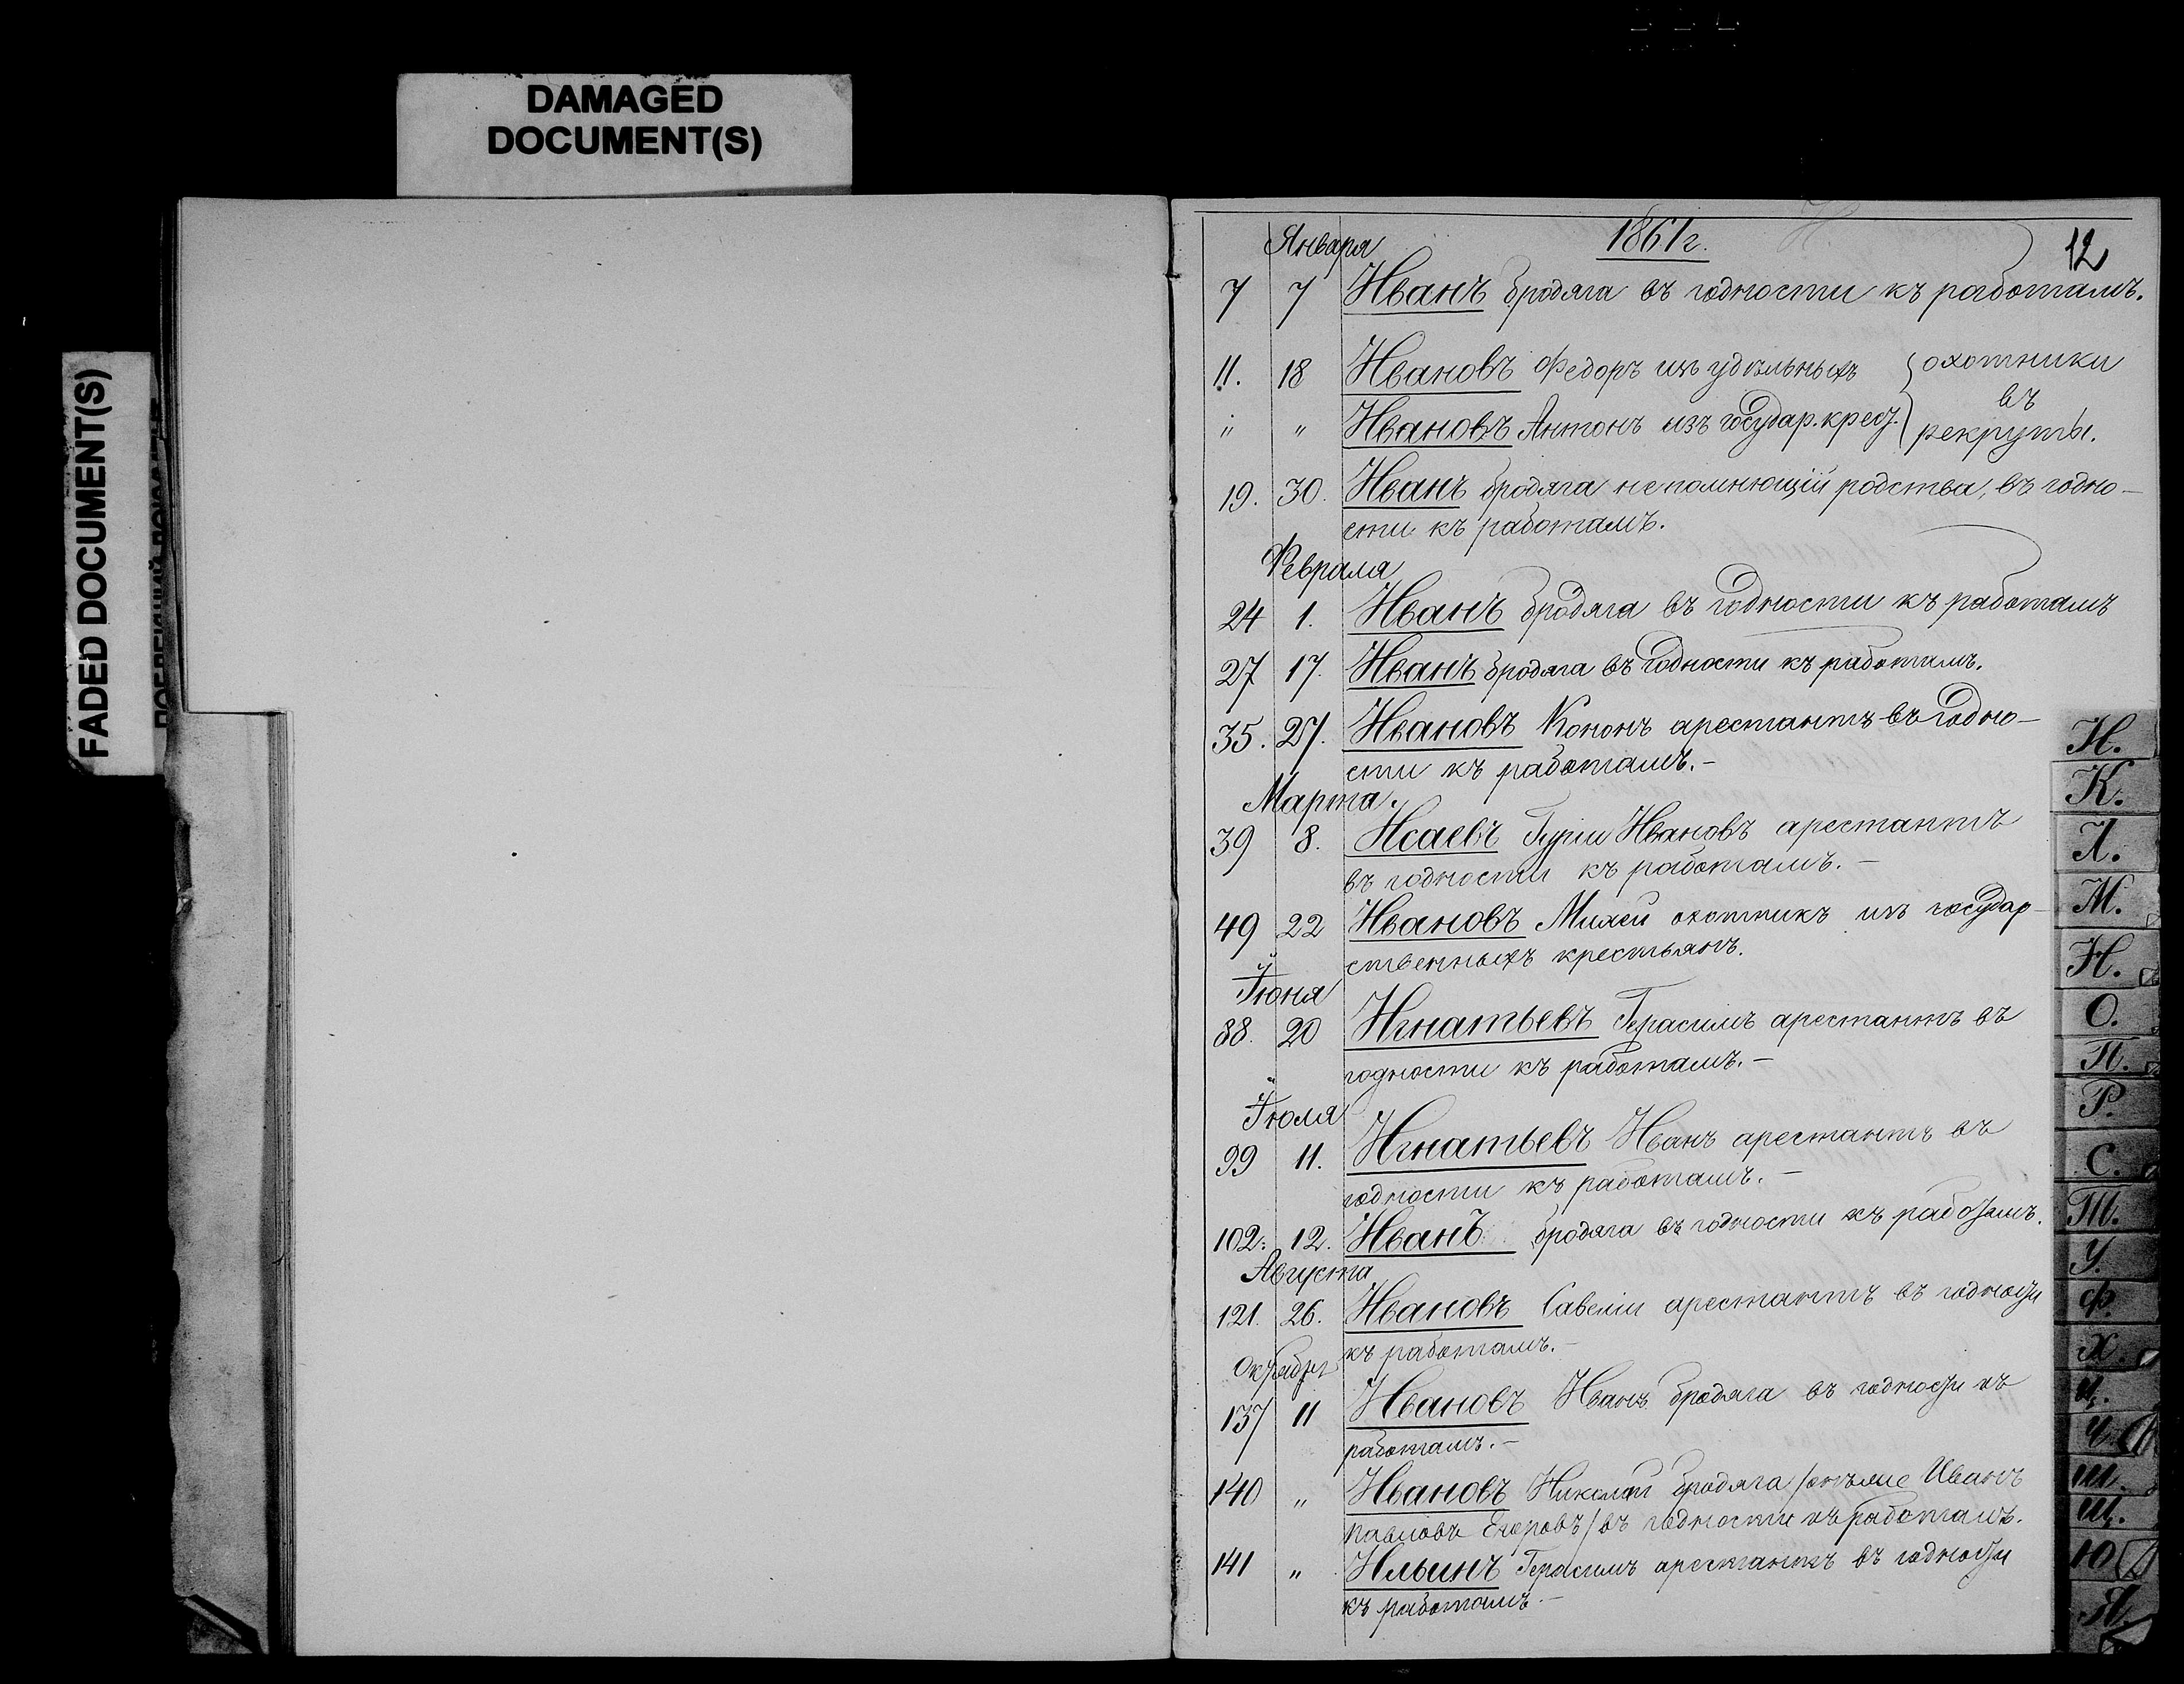 DAMAGED
DOCUMENT(S)
FADED DOCUMENT(S)
1861 г.
12
Января
7 7 Иванъ бродяга въ годности къ работамъ.
11. 18 Ивановъ Федоръ изъ удѣльныхъ } охотники
въ
" " Ивановъ Антонъ изъ государ. крест. } рекруты.
19. 30. Иванъ бродяга непомнющій родства, въ годно-
сти къ работамъ.
Февраля
24 1. Иванъ бродяга въ годности къ работамъ
27 17. Иванъ бродяга въ годности къ работамъ.
35. 27. Ивановъ Кононъ арестантъ въ годно-
сти къ работамъ.-
Марта.
39 8. Исаевъ Гурій Ивановъ арестантъ
въ годности къ работамъ.-
49 22 Ивановъ охотникъ изъ государ-
ственныхъ крестьянъ.
Іюня
88. 20 Игнатьевъ Герасимъ арестантъ въ
годности къ работамъ.-
Іюля
99 11. Игнатьевъ Иванъ арестантъ въ
годности къ работамъ.-
102. 12. Иванъ бродяга въ годности къ работамъ.
Августа
121. 26. Ивановъ Савелій арестантъ въ годности
къ работамъ.-
Октября
137 11 Ивановъ Иванъ бродяга въ годности къ
работамъ.-
140 " Ивановъ Николай бродяга /онъ же Иванъ
Павловъ Егоровъ/ въ годности къ работамъ.
141 " Ильинъ Герасимъ арестантъ въ годности
къ работамъ.-
И.
К.
Л.
М.
Н.
О.
П.
Р.
С.
Т.
У.
Ф.
Х.
Ц.
Ч.
Ш.
Щ.
Ю
Я